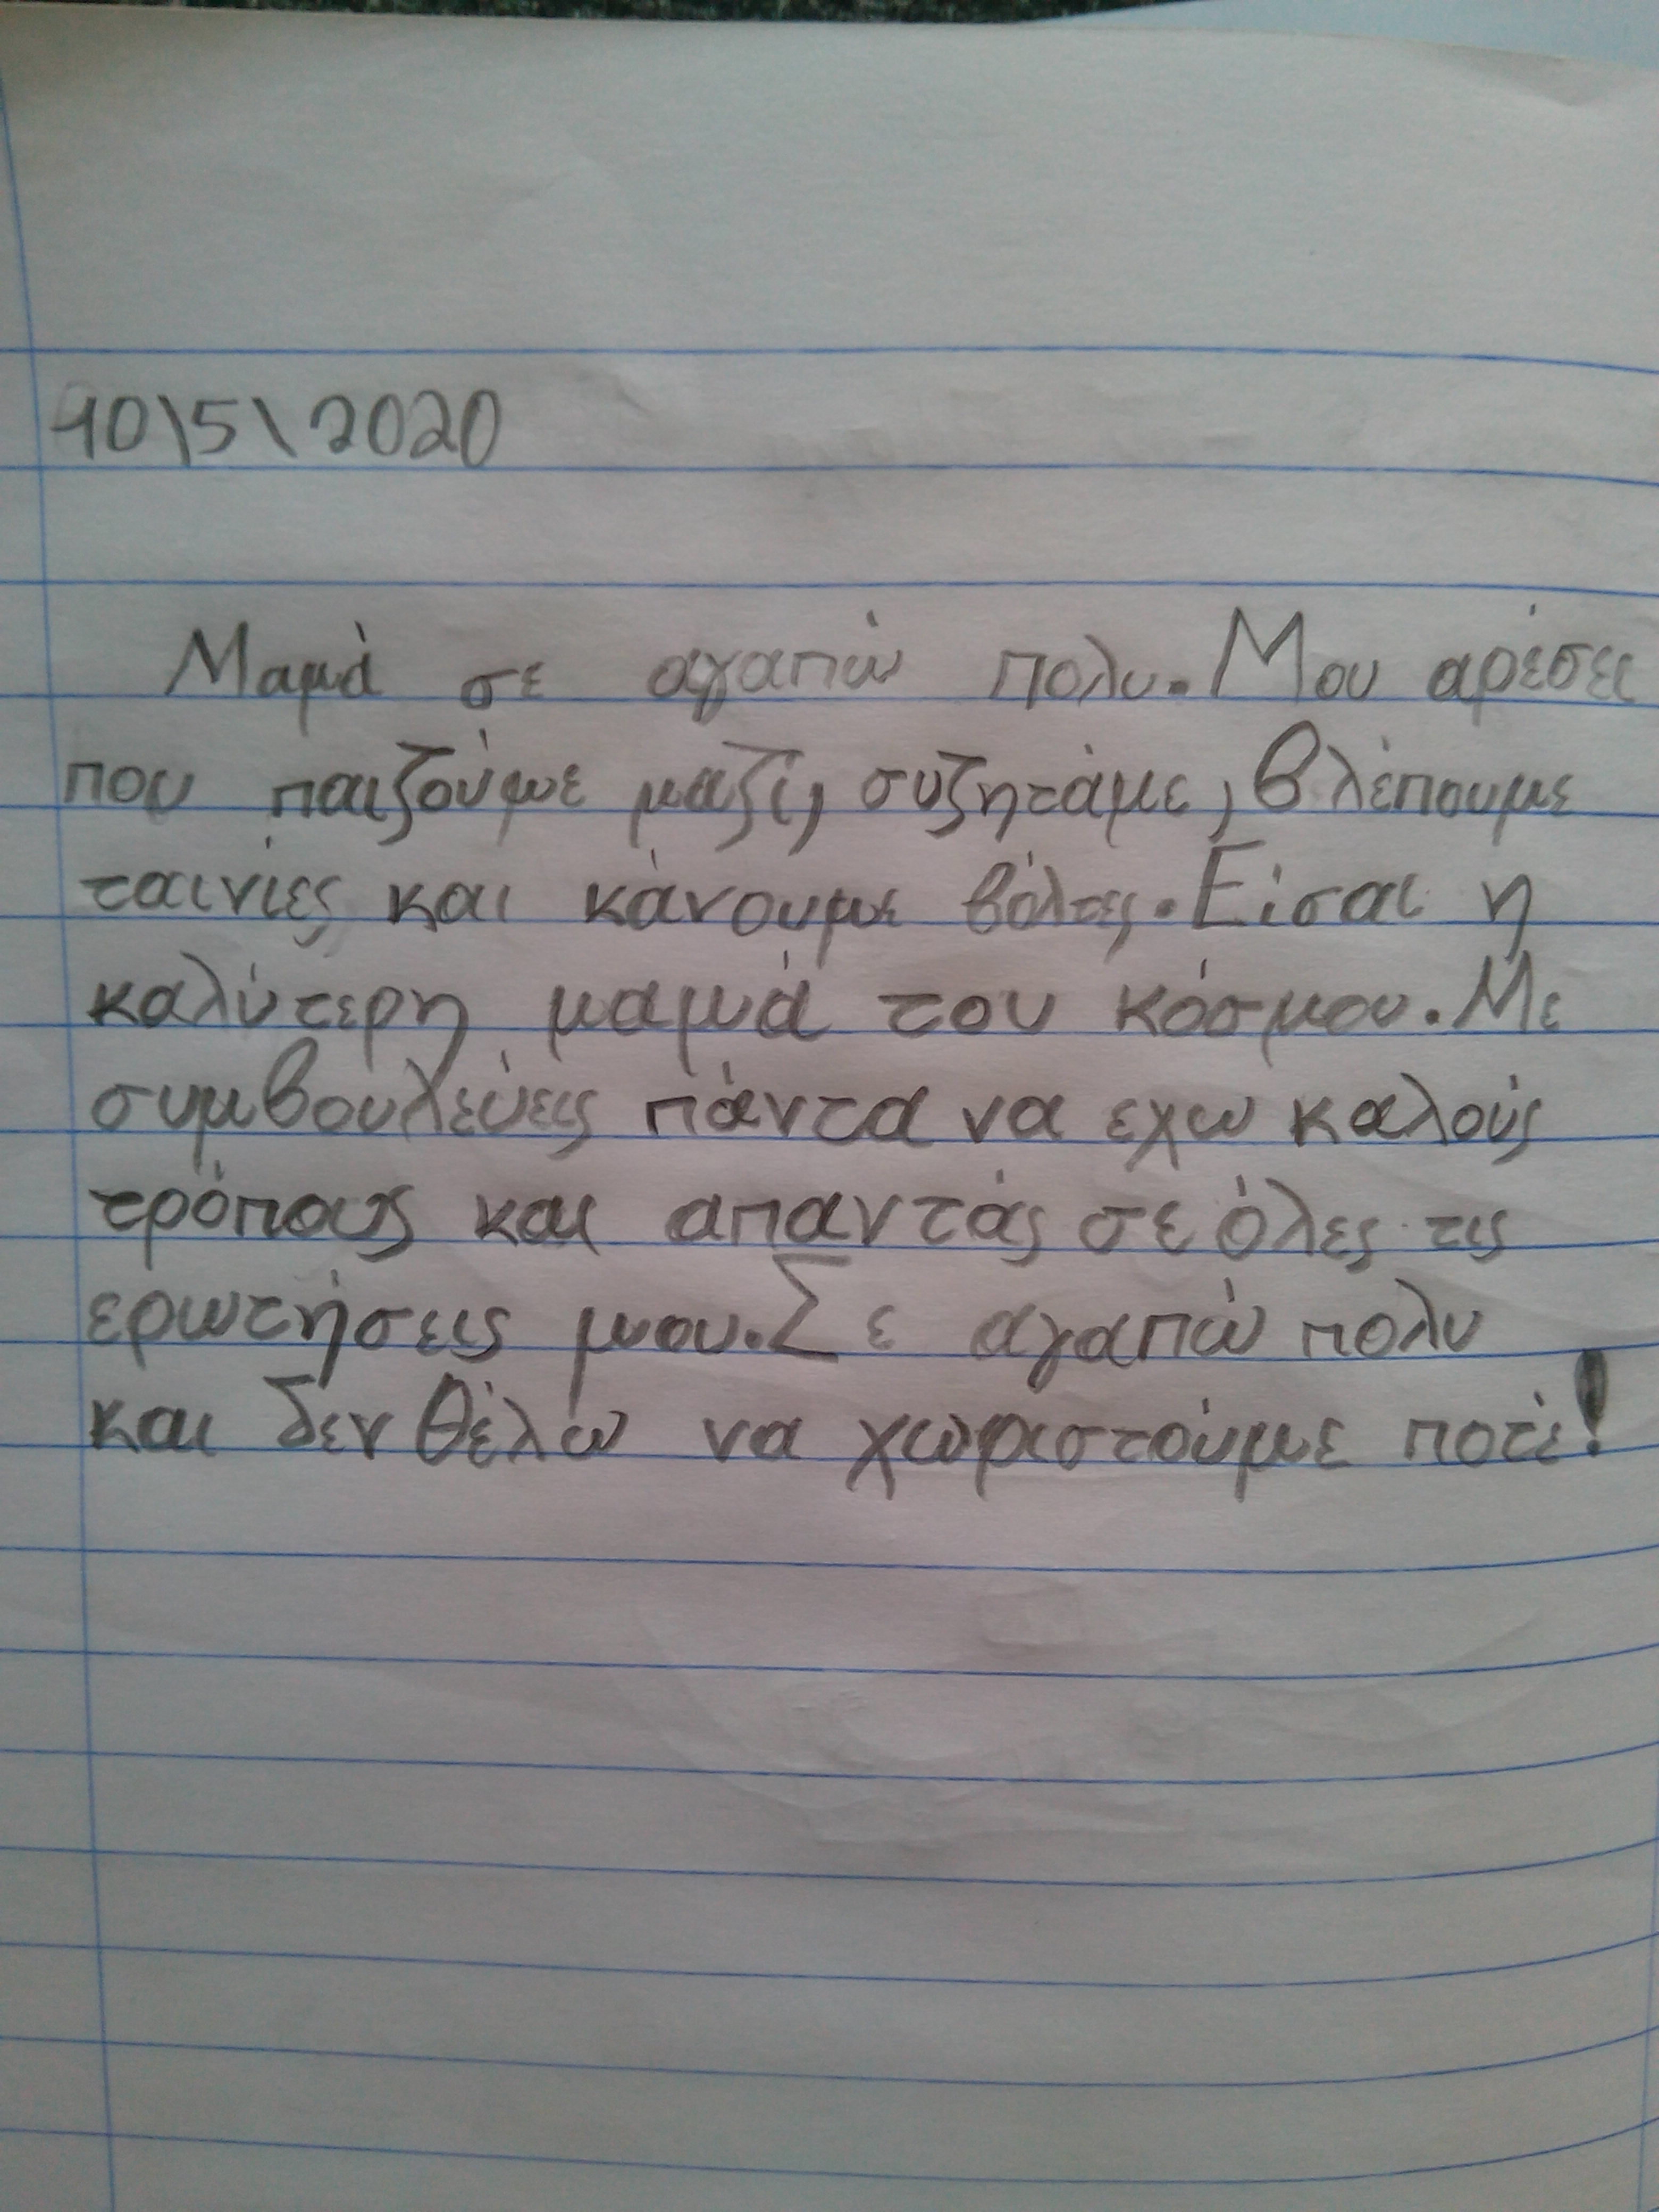 10\5\2020
Μαμά σε αγαπώ πολυ. Μου αρέσει
που παιζούμε μαζί, συζητάμε, βλέπουμε
ταινίες και κάνουμε βόλτες. Είσαι η
καλύτερη μαμά του κόσμου. Με
συμβουλεύεις πάντα να εχω καλούς
τρόπους και απαντάς σε όλες τις
ερωτήσεις μου. Σε αγαπώ πολυ
και δεν θέλω να χωριστούμε ποτέ!